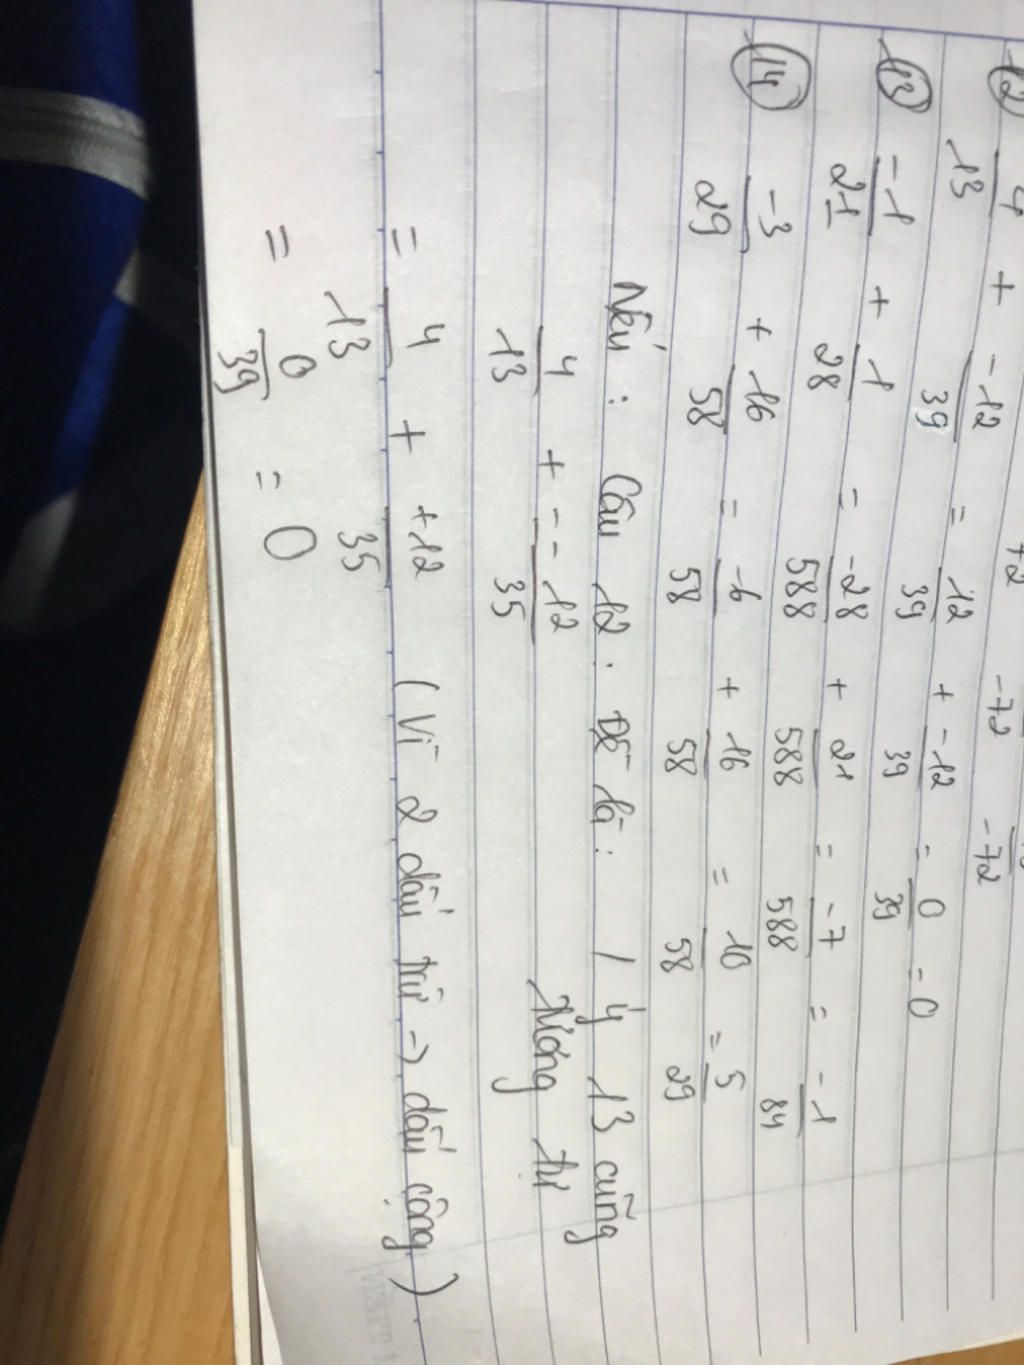 12 4/13 + -12/39 = 12/39 + -12/39 = 0/39 = 0
13 -1/21 + 1/28 = -28/588 + 21/588 = -7/588 = -1/84
14 -3/29 + 16/58 = -6/58 + 16/58 = 10/58 = 5/29
Nếu : Câu 12. Đề là : / ý 13 cũng
4/13 + --12/35 tương tự
= 4/13 + +12/35 (Vì 2 dấu trừ → dấu cộng)
= 0/39 = 0